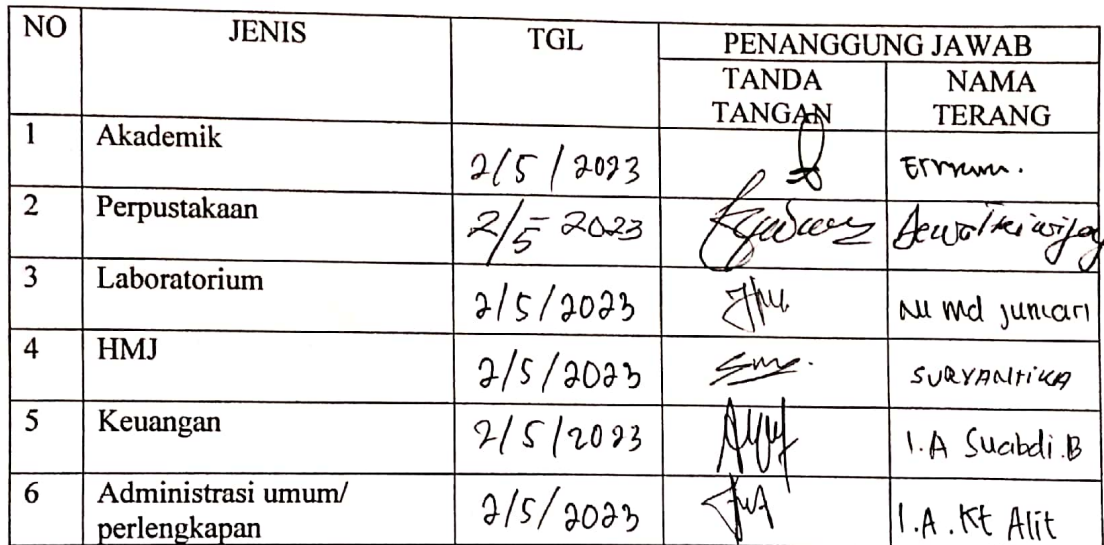 NO JENIS TGL PENANGGUNG JAWAB
TANDA TANGAN NAMA TERANG
1 Akademik 2/5/2023
2 Perpustakaan 2/5 2023
3 Laboratorium 2/5/2023 Ni Md Juniari
4 HMJ 2/5/2023 SURYANTIKA
5 Keuangan 2/5/2023 I.A Suabdi.B
6 Administrasi umum/ 2/5/2023 I.A. Kt Alit
perlengkapan